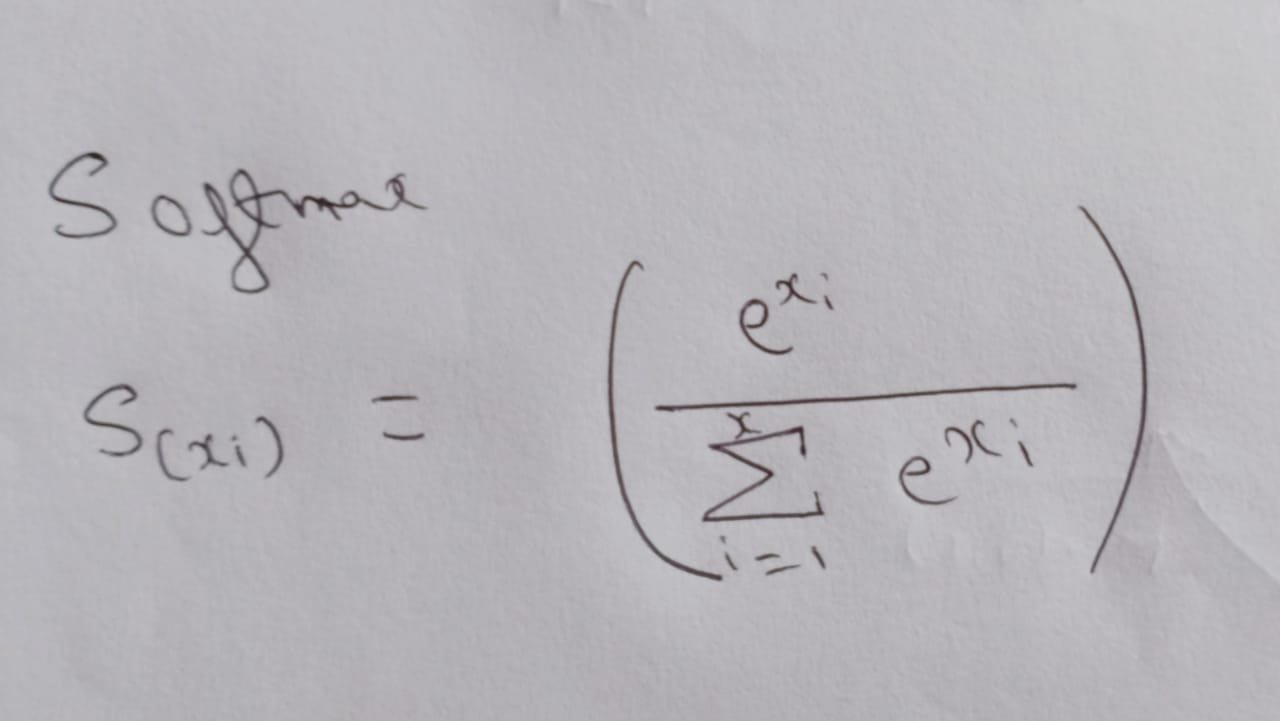 Softmax
S(xi) = ( e^xi / x∑i=1 e^xi )